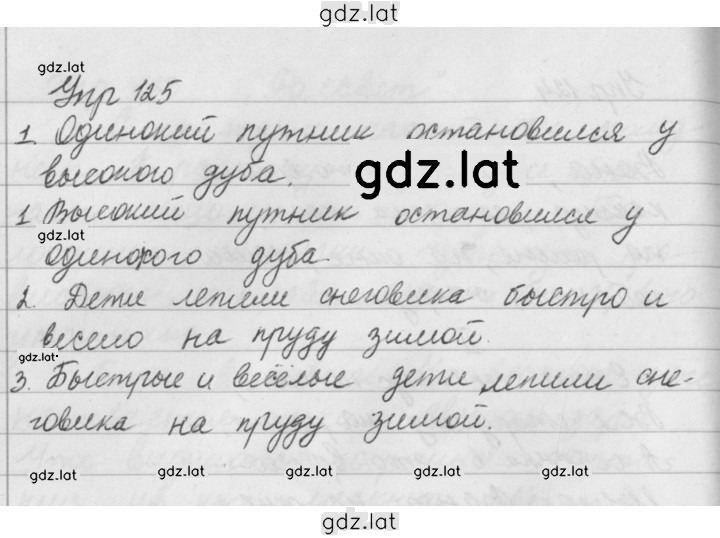 gdz.lat
gdz.lat
Упр 125
1. Одинокий путник остановился у
высокого дуба.
gdz.lat
1 Высокий путник остановился у
gdz.lat
одинокого дуба.
2. Дети лепили снеговика быстро и
весело на пруду зимой.
gdz.lat
3. Быстрые и весёлые дети лепили сне-
говика на пруду зимой.
gdz.lat gdz.lat gdz.lat gdz.lat gdz.lat
gdz.lat